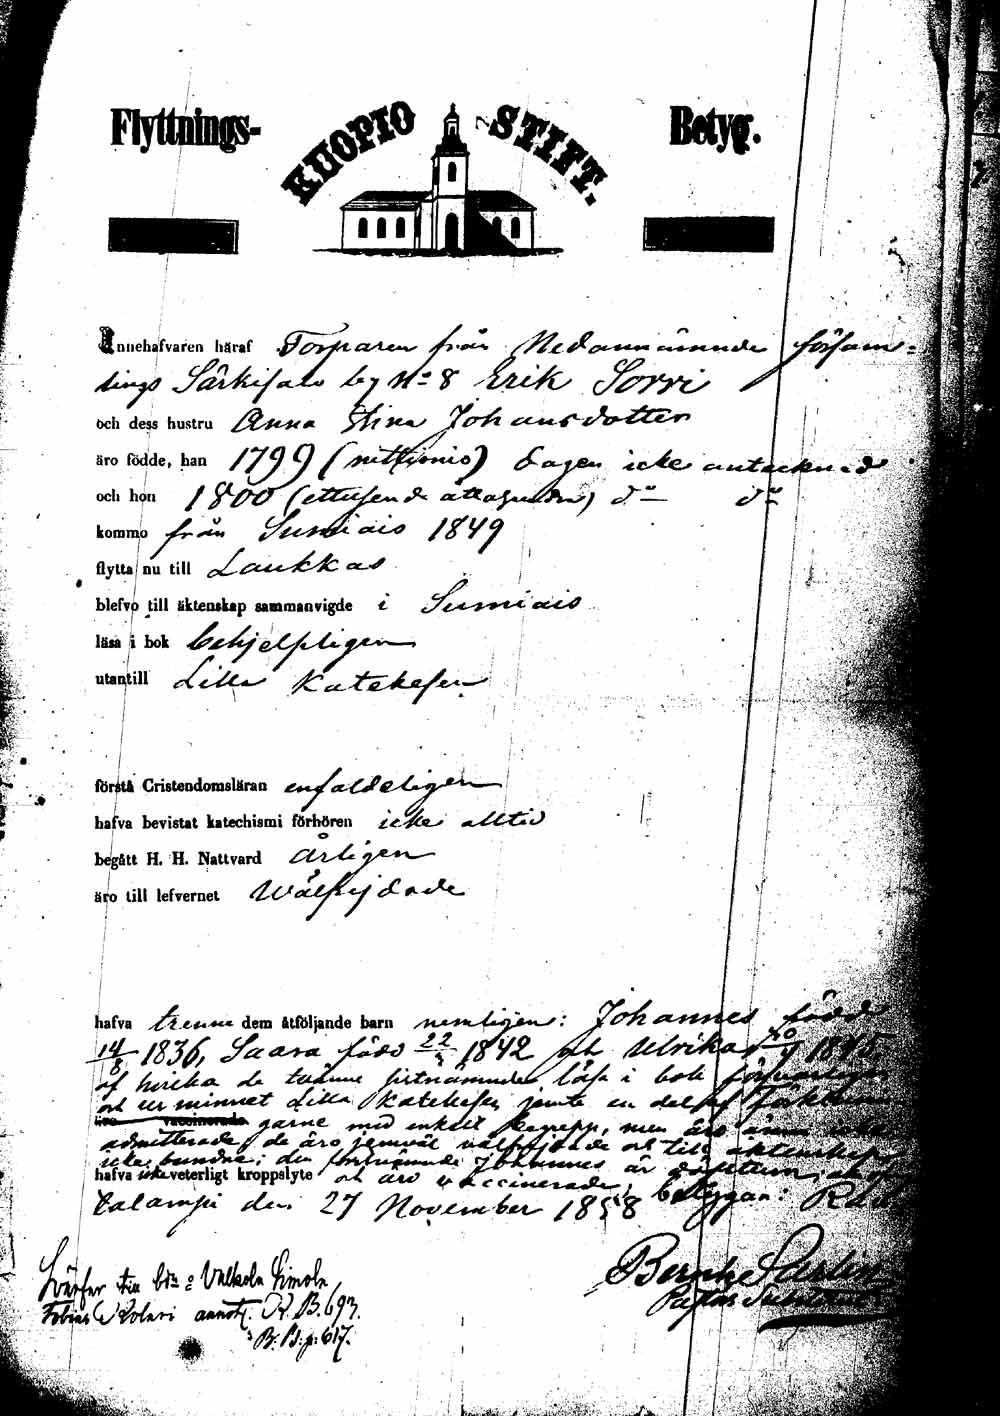 Flyttnings- KUOPIO STIFT. Betyg.
Innehafvaren häraf Torparen från Nedannämnde försam=
lings Särkisalo by No 8 Erik Sorri
och dess hustru Anna Stina Johansdotter
äro födde, han 1799 (nittionio) dagen icke antecknad
och hon 1800 (ettusende åttahundra) do do
kommo från Sumiais 1849
flytta nu till Laukkas
blefvo till äktenskap sammanvigde i Sumiais
läsa i bok behjelpligen
utantill Lilla Katekesen
förstå Cristendomsläran enfaldeligen
hafva bevistat katechismi förhören icke alltid
begått H. H. Nattvard årligen
äro till lefvernet Wälfrejdade
hafva trenne dem åtföljande barn nemligen: Johannes född
14/8 1836, Saara född 22/ 1842 och Ulrika 1845.
af hvilka de tvänne läsa i bok
och ur minnet Lilla Katekesen jemte en del af
äro vaccinerade garne med enkelt begrepp, men äro ännu icke
admitterade, de äro jemväl välfrejdade och till äktenskap
icke bundne; den förstnämnde Johannes är
hafva icke veterligt kroppslyte och äro vaccinerade, betygar: Rau
talampi den 27 November 1858
Bernh Sarlin
Pastors
till Valkola
Tobias annot. K. B. 693.
B. B. p. 617.